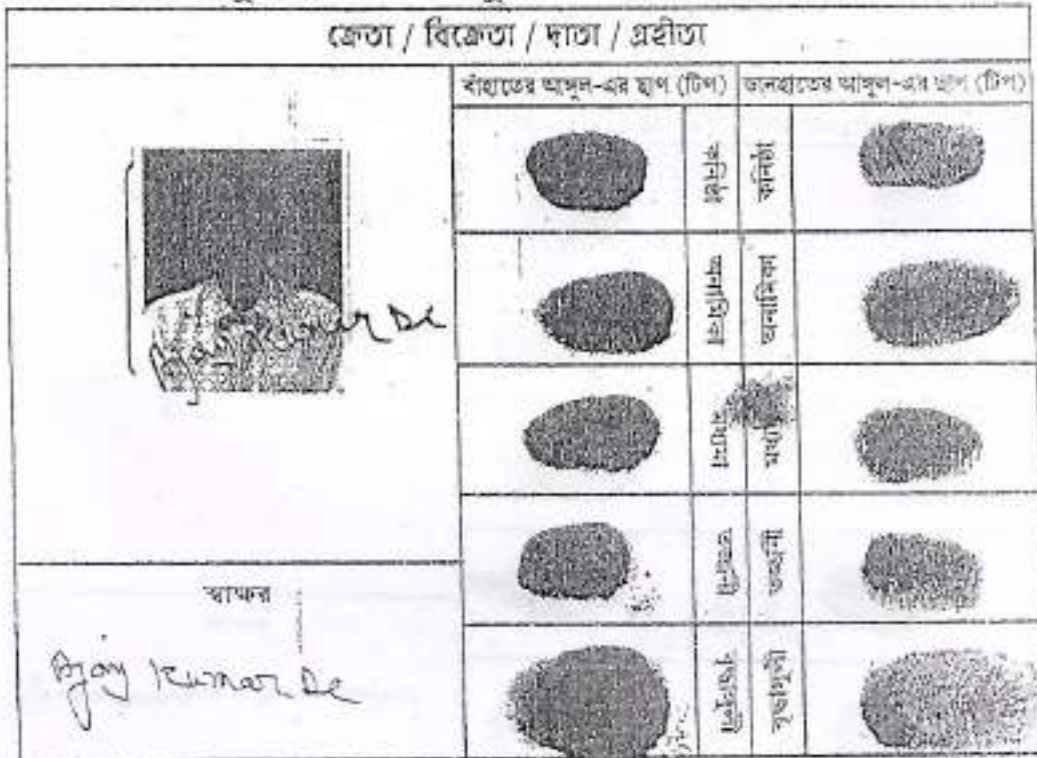 ক্রেতা / বিক্রেতা / দাতা / গ্রহীতা
বাঁহাতের আঙ্গুল-এর ছাপ (টিপ)
ডানহাতের আঙ্গুল-এর ছাপ (টিপ)
কনিষ্ঠা
কনিষ্ঠা
অনামিকা
অনামিকা
মধ্যমা
মধ্যমা
তর্জনী
তর্জনী
বৃদ্ধাঙ্গুলী
বৃদ্ধাঙ্গুলী
Ajay Kumar De
স্বাক্ষর
Ajay Kumar De